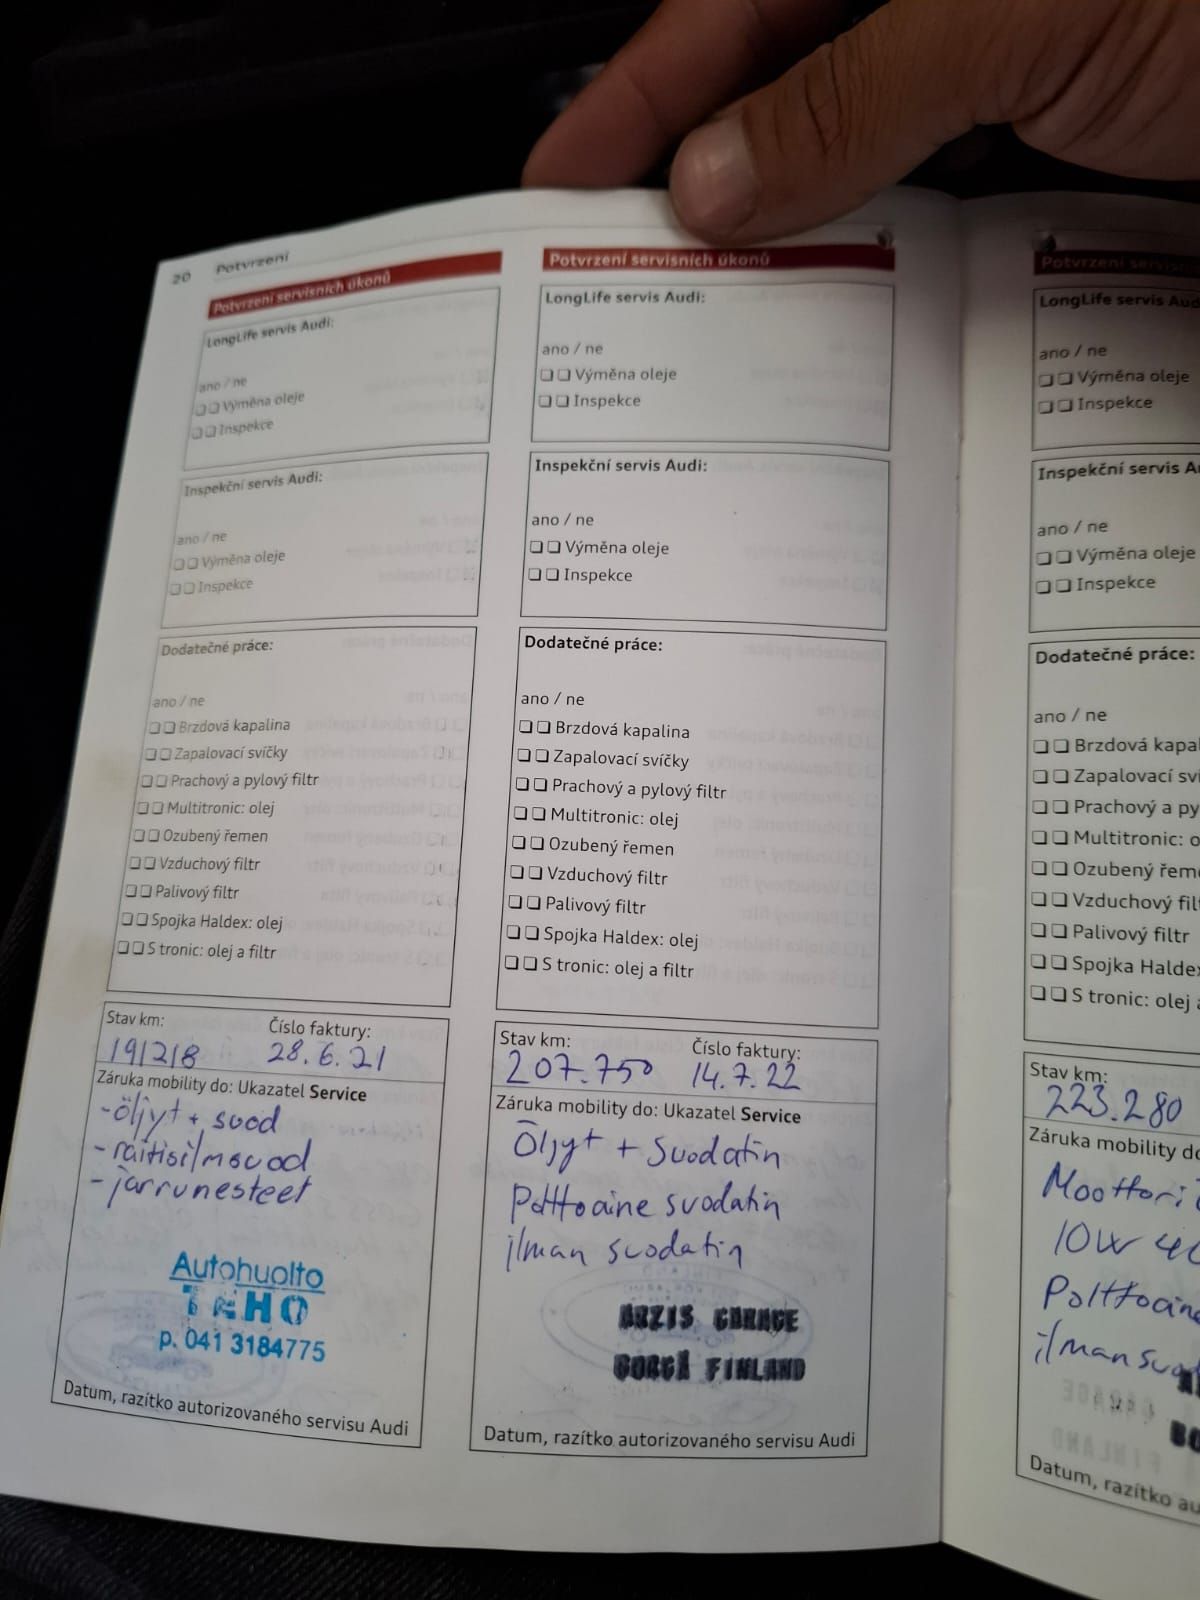 20 Potvrzení
Potvrzení servisních úkonů
LongLife servis Audi:
ano / ne
Výměna oleje
Inspekce
Inspekční servis Audi:
ano / ne
Výměna oleje
Inspekce
Dodatečné práce:
ano / ne
Brzdová kapalina
Zapalovací svíčky
Prachový a pylový filtr
Multitronic: olej
Ozubený řemen
Vzduchový filtr
Palivový filtr
Spojka Haldex: olej
S tronic: olej a filtr
Stav km: Číslo faktury:
191218 28.6.21
Záruka mobility do: Ukazatel Service
-öljyt + suod
-raitisilmsuod
-jarrunesteet
Autohuolto
TAHO
p. 041 3184775
Datum, razítko autorizovaného servisu Audi
Potvrzení servisních úkonů
LongLife servis Audi:
ano / ne
Výměna oleje
Inspekce
Inspekční servis Audi:
ano / ne
Výměna oleje
Inspekce
Dodatečné práce:
ano / ne
Brzdová kapalina
Zapalovací svíčky
Prachový a pylový filtr
Multitronic: olej
Ozubený řemen
Vzduchový filtr
Palivový filtr
Spojka Haldex: olej
S tronic: olej a filtr
Stav km: Číslo faktury:
207.750 14.7.22
Záruka mobility do: Ukazatel Service
Öljyt + Suodatin
Polttoaine suodatin
ilman suodatin
GARAGE
BORGÅ FINLAND
Datum, razítko autorizovaného servisu Audi
Potvrzení servisní
LongLife servis Aud
ano / ne
Výměna oleje
Inspekce
Inspekční servis A
ano / ne
Výměna oleje
Inspekce
Dodatečné práce:
ano / ne
Brzdová kapa
Zapalovací sví
Prachový a py
Multitronic: o
Ozubený řem
Vzduchový fil
Palivový filtr
Spojka Halde
S tronic: olej
Stav km:
223.280
Záruka mobility do
Moottori
10W 40
Polttoaine
ilman suod
Datum, razítko au